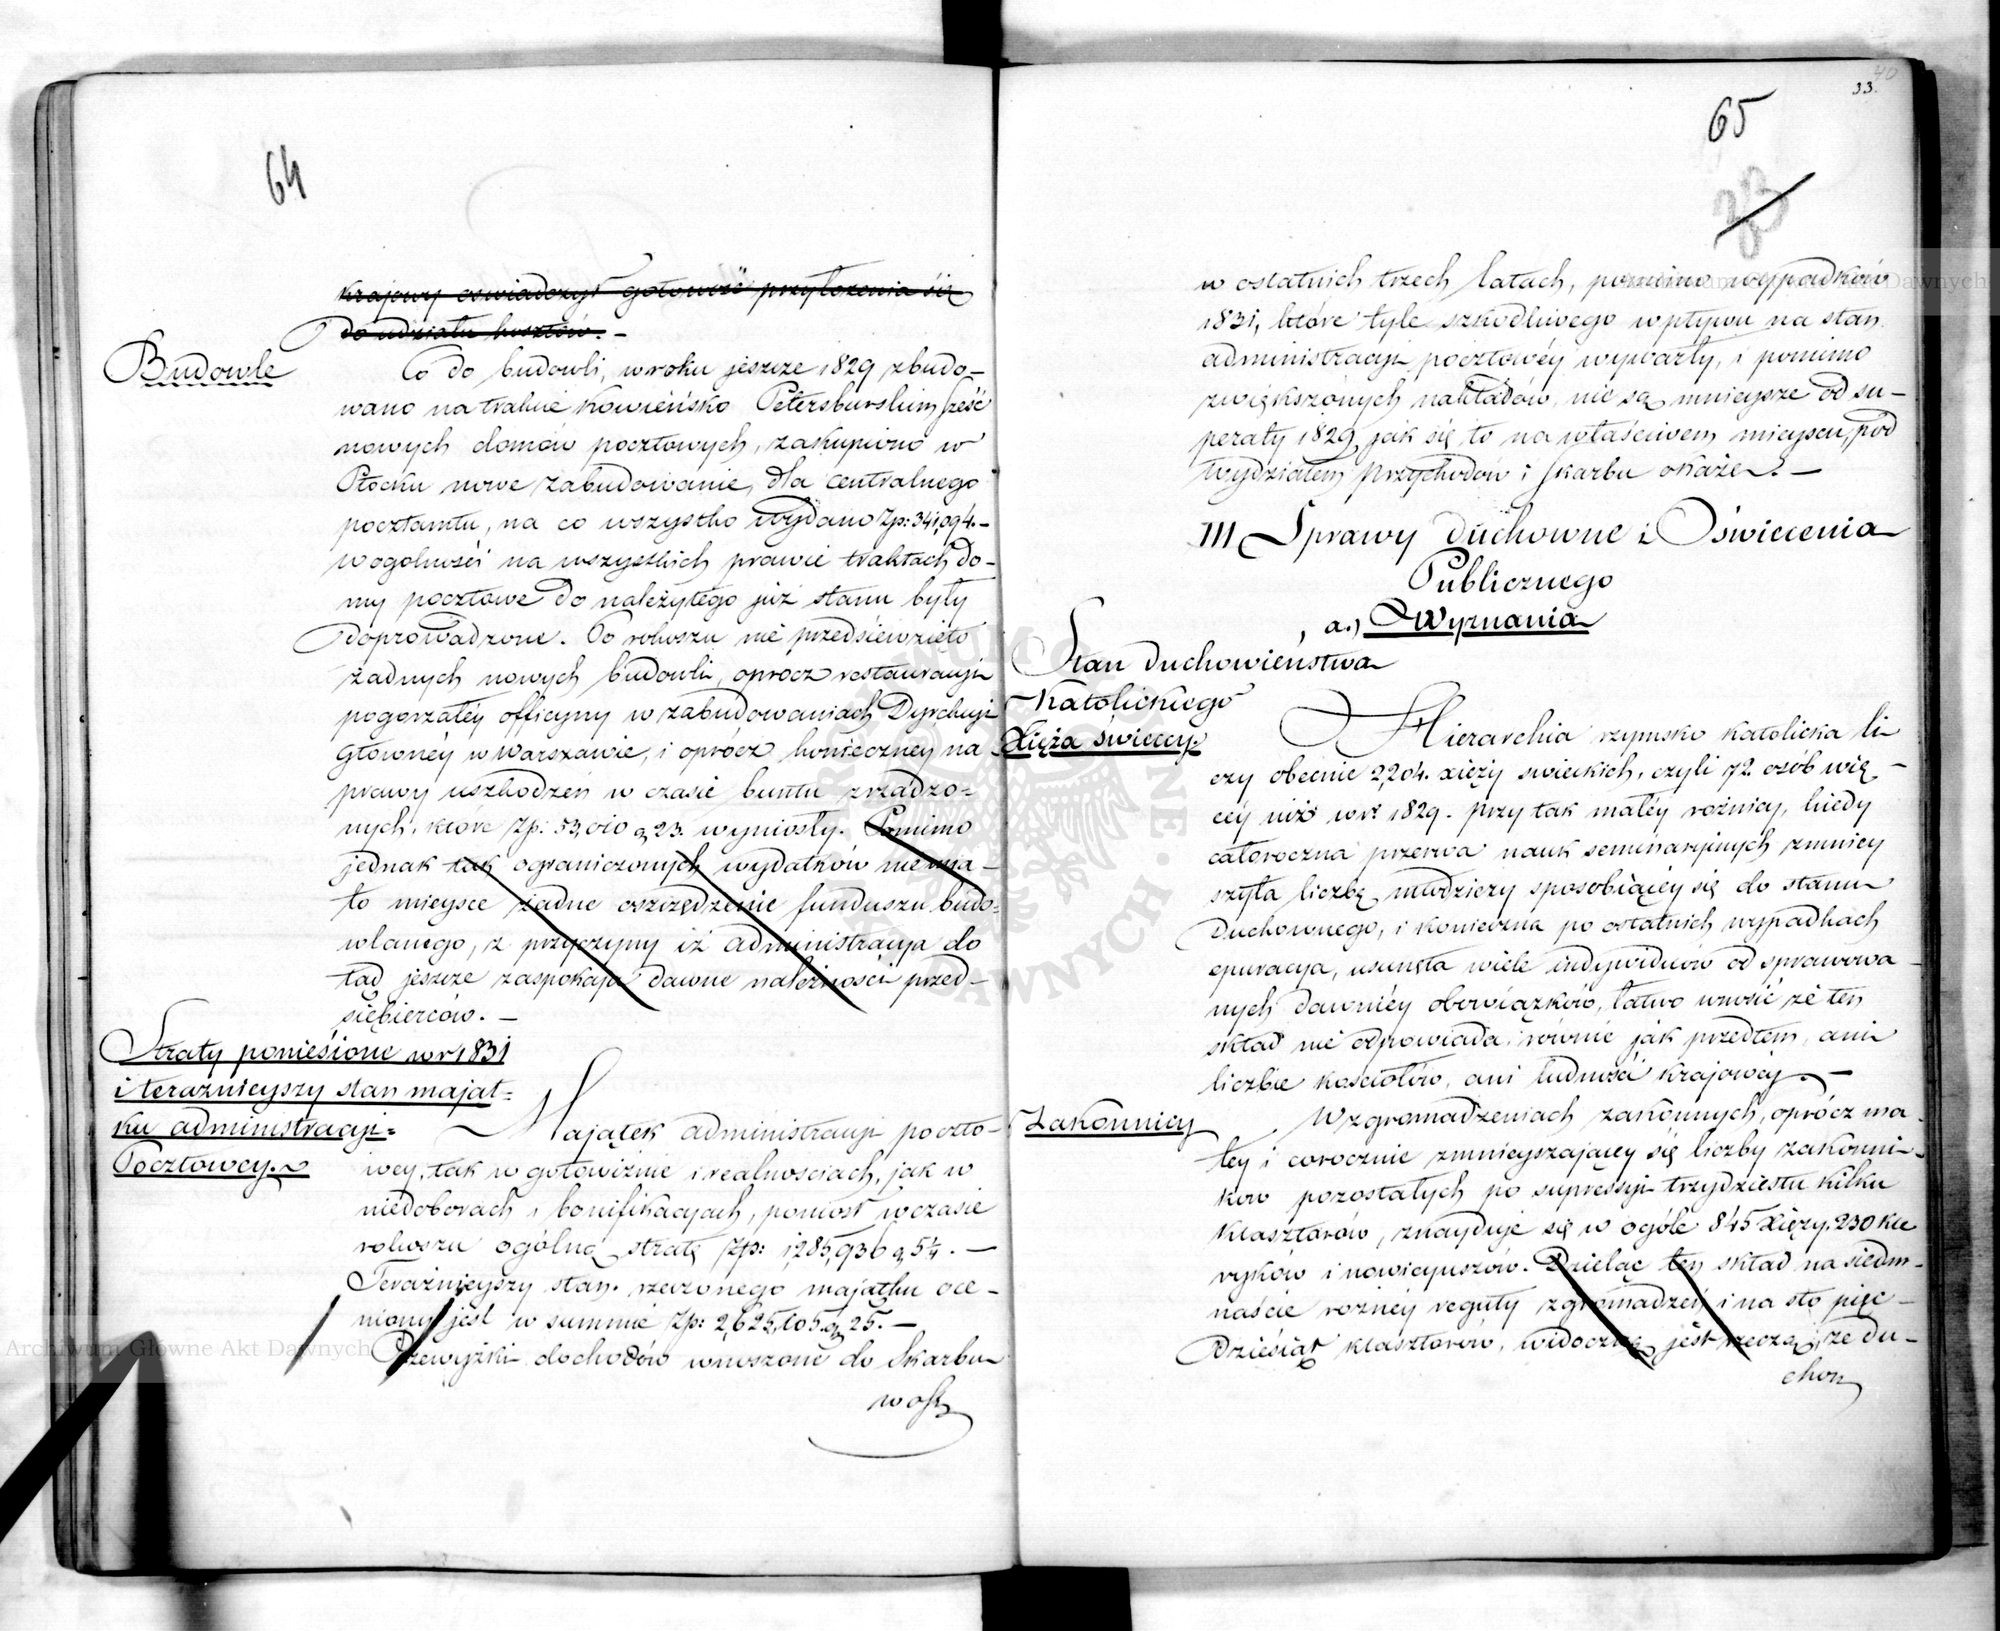 64
krajowy oswiadczył gotowość przyłożenia się
do udziału kosztów. –
Budowle
Co do budowli, w roku jeszcze 1829 zbudo-
wano na trakcie Kowieńsko Petersburskim sześć
nowych domów pocztowych, zakupiono w
Płocku nowe zabudowanie, dla centralnego
pocztamtu, na co wszystko wydano Zp: 341,094. –
W ogolności na wszystkich prawie traktach do-
my pocztowe do należytego już stanu były
doprowadzone. Po rokoszu nie przedsięwzięto
żadnych nowych budowli, oprócz restauracyi
pogorzałéy officyny w zabudowaniach Dyrekcyi
Głównéy w Warszawie, i oprócz konieczney na
prawy uszkodzeń w czasie buntu zrządzo=
nych, które Zp: 53,010 g 23. wyniosły. Pomimo
jednak tak ograniczonych wydatków nie mia-
ło mieysce żadne oszczędzenie funduszu budo=
wlanego, z przyczyny iż administracya do
tąd jeszcze zaspokaja dawne należności przed-
siębierców. –
Straty poniesione w r 1831
i teraznieyszy stan mająt=
ku administracyi=
Pocztowey.
Majątek administracyi poczto-
wey, tak w gotowiźnie i realnościach, jak w
niedoborach i bonifikacyach, poniósł w czasie
rokoszu ogólną stratę Zp: 1,285,936 g 5¼. –
Teraźnieyszy stan rzeczonego majątku oce-
niony jest w summie Zp: 2,625,105 g 25. –
Przewyżki dochodów wnoszone do Skarbu
w ost
40
33.
65
33
w ostatnich trzech latach, pomimo wypadków
1831, które tyle szkodliwego wpływu na stan
administracyi pocztowéy wywarły, i pomimo
zwiększonych nakładów, nie są mnieysze od su-
peraty 1829 jak się to na właściwem mieyscu, pod
Wydziałem Przychodów i Skarbu okaże. –
III Sprawy Duchowne i Oświecenia
Publicznego
a.) Wyznania
Stan Duchowieństwa
Katolickiego
Xięża świeccy.
Hierarchia rzymsko katolicka li
czy obecnie 2,204. xięży swieckich, czyli 72. osób wię-
céy niż w r. 1829. przy tak małéy różnicy, kiedy
całoroczna przerwa nauk seminaryinych zmniey
szyła liczbę młodzieży sposobiącéy się do stanu
Duchownego, i konieczna po ostatnich wypadkach
epuracya, usunęła wiele indywiduów od sprawowa-
nych dawniéy obowiązków, łatwo wnosić że ten
skład nie odpowiada równie jak przedtem, ani
liczbie kosciołów, ani ludności krajowéy. –
Zakonnicy
W zgromadzeniach zakonnych, oprócz ma-
łey i corocznie zmnieyszającéy się liczby zakonni-
ków pozostałych po supressyi trzydziestu kilku
klasztorów, znayduje się w ogóle 845 Xięży, 230 kle
ryków i nowicyuszów. Dzieląc ten skład na siedm-
naście rożnéy reguły zgromadzeń i na sto pięć-
dziésiąt klasztorów, widoczną jest rzeczą, że du-
chow
Archiwum Główne Akt Dawnych